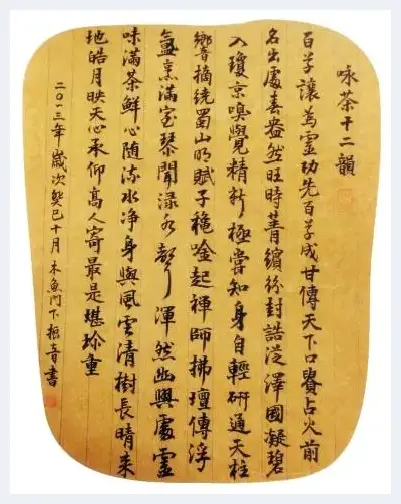 咏茶十二韻
百草讓為靈功先百草成甘傳天下口貴占火前
名出處春盎然旺時菁繽紛封誥泛澤國凝碧
入瓊京嗅覺精新極嘗知身自輕研通天柱
響摘繞蜀山明賦子龝唫起禪師拂壇傳浮
烹滿室琴聞淥水聲渾然幽興處靈
味滿茶鮮心隨流水净身與風雲清樹長晴来
地皓月映天心承仰高人寄最是堪珍重
二〇一三年歲次癸巳十月木魚門下音書